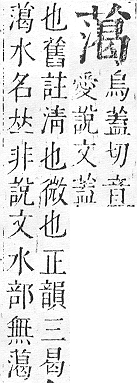 烏蓋切音
愛說文蓋
也舊註淸也微也正韻三曷
水名𠀤非說文水部無